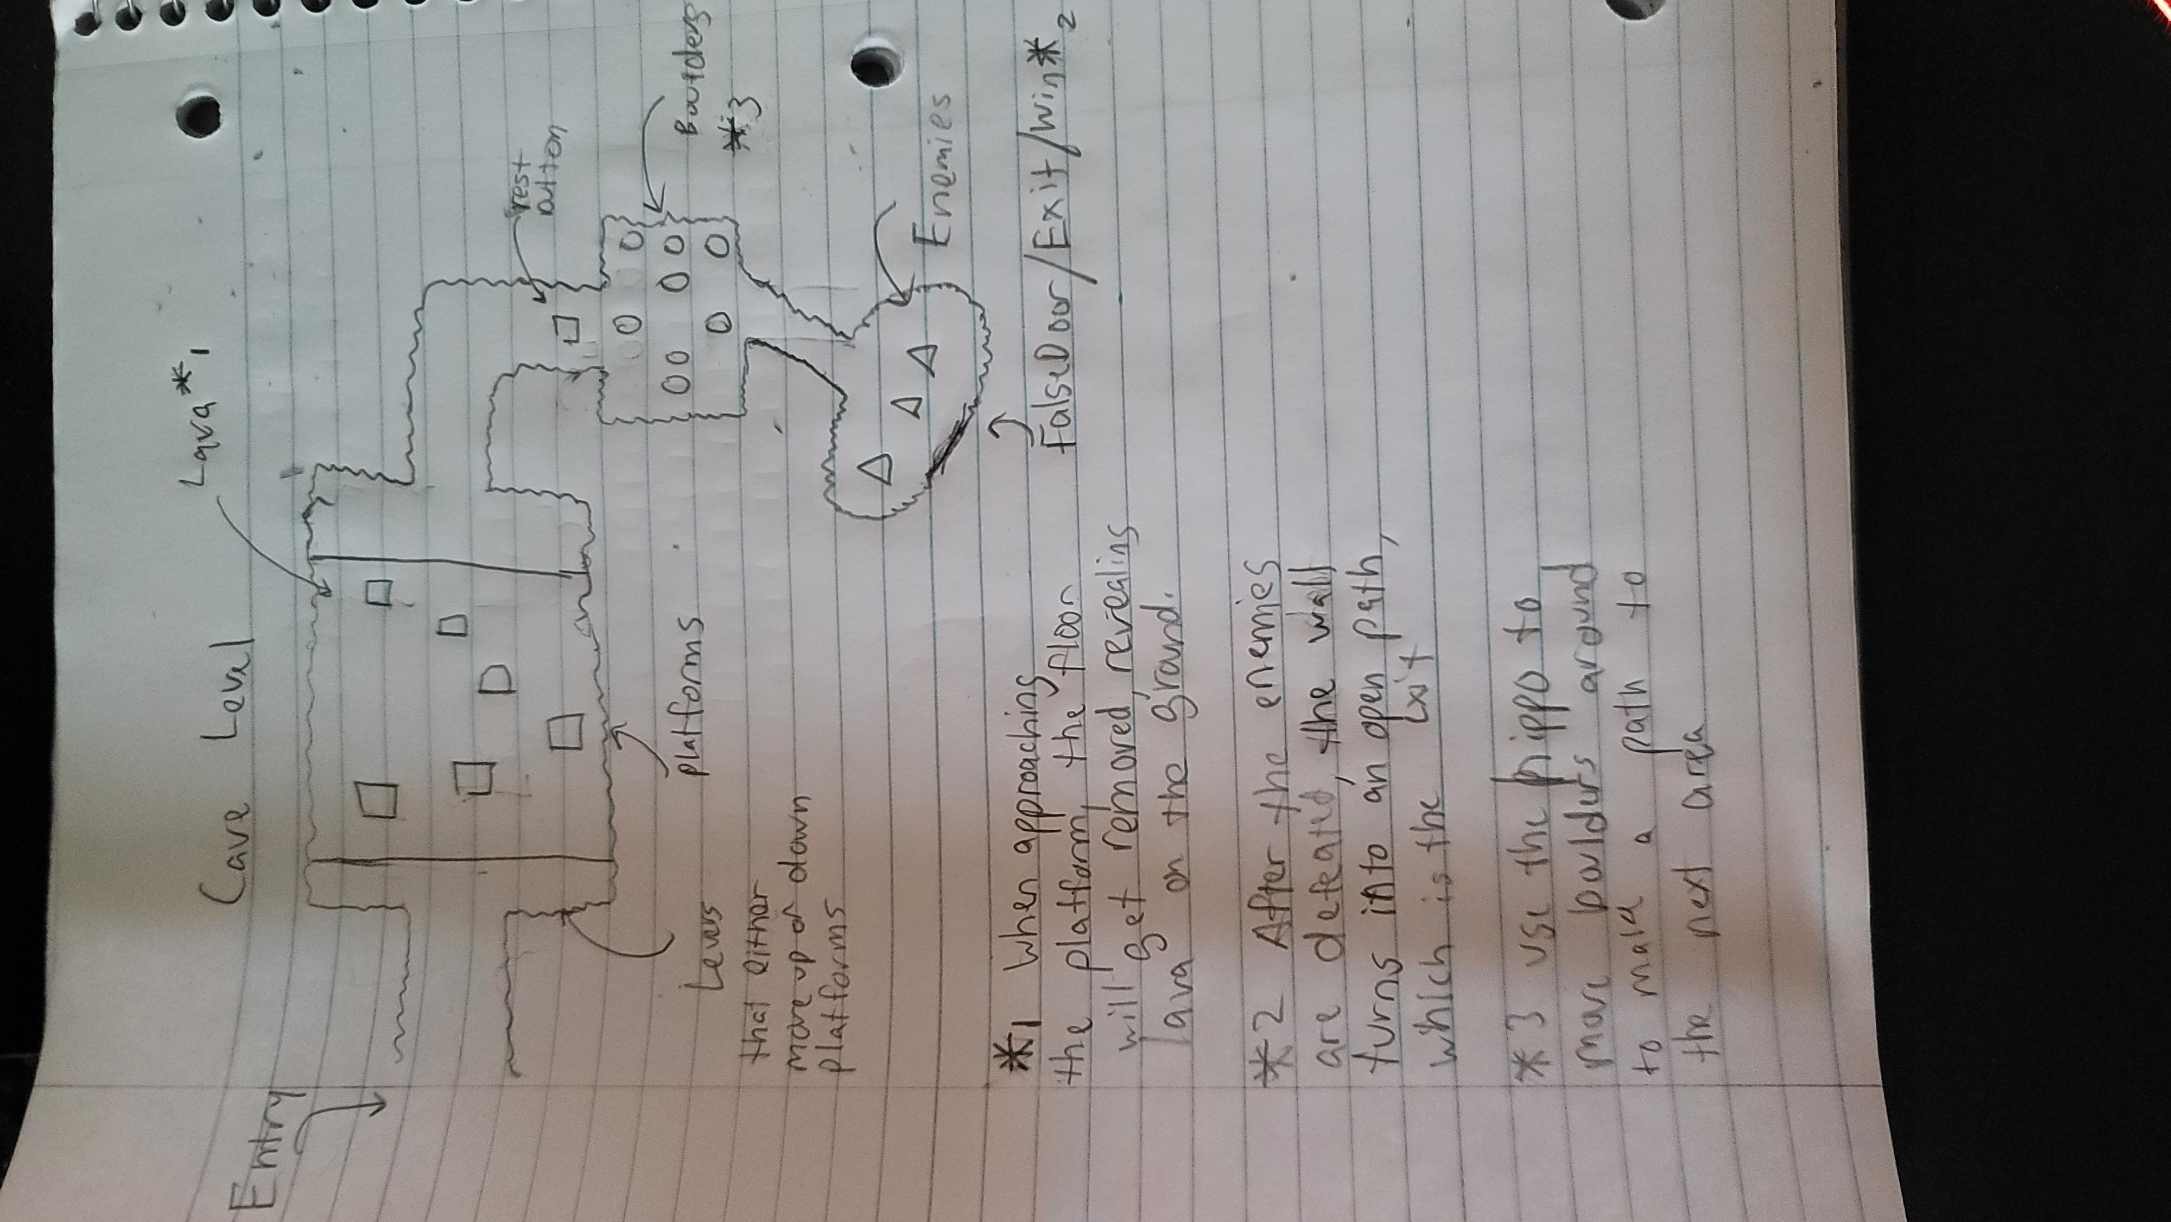 Cave Level
Lava*1
Entry
rest
button
Boulders
*3
platforms
Levers
that either
move up or down
platforms
Enemies
False Door/Exit/Win*2
*1 When approaching
the platform, the floor
will get removed, revealing
lava on the ground.
*2 After the enemies
are defeated, the wall
turns into an open path,
which is the Exit
*3 use the hippo to
move boulders around
to make a path to
the next area